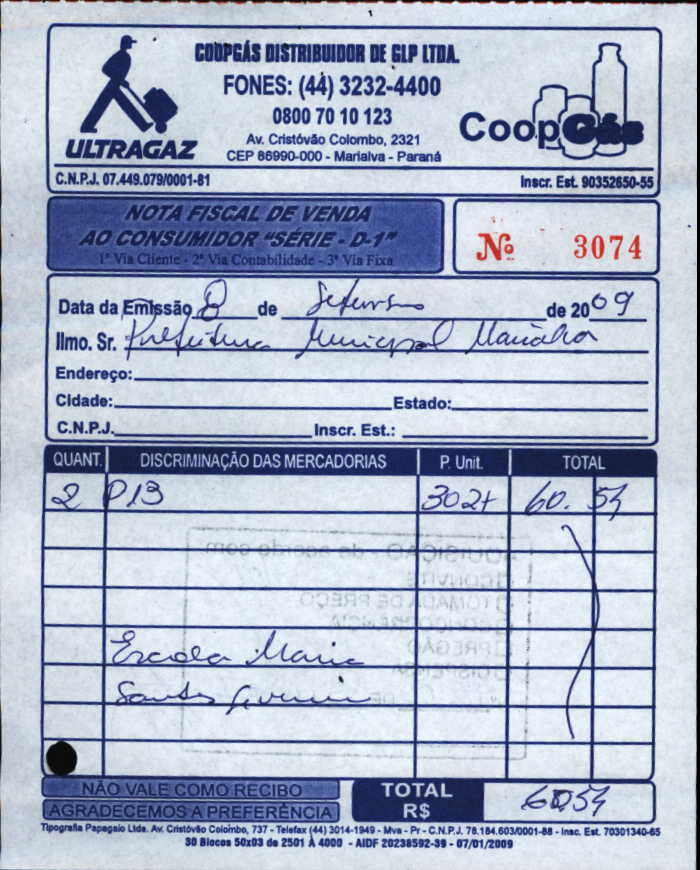 COOPGÁS DISTRIBUIDOR DE GLP LTDA.
FONES: (44) 3232-4400
0800 70 10 123
Av. Cristóvão Colombo, 2321
CEP 86990-000 - Marialva - Paraná
ULTRAGAZ
CoopGás
C.N.P.J. 07.449.079/0001-81
Inscr. Est. 90352650-55
NOTA FISCAL DE VENDA
AO CONSUMIDOR "SÉRIE - D-1"
1ª Via Cliente - 2ª Via Contabilidade - 3ª Via Fixa
Nº 3074
Data da Emissão 8 de Setembro de 2009
Ilmo. Sr. Prefeitura Municipal Marialva
Endereço:
Cidade: Estado:
C.N.P.J. Inscr. Est.:
QUANT. DISCRIMINAÇÃO DAS MERCADORIAS P. Unit. TOTAL
2 P13 3027 60.54
AQUISIÇÃO - de acordo com
CONVITE
TOMADA DE PREÇO
CONCORRÊNCIA
PREGÃO
DISPENSA
DE
Escola Maria
Santos
NÃO VALE COMO RECIBO
AGRADECEMOS A PREFERÊNCIA
TOTAL
R$ 60.54
Tipografia Papagaio Ltda. Av. Cristóvão Colombo, 737 - Telefax (44) 3014-1949 - Mva - Pr - C.N.P.J. 78.184.603/0001-88 - Insc. Est. 70301340-65
30 Blocos 50x03 de 2501 À 4000 - AIDF 20238592-39 - 07/01/2009